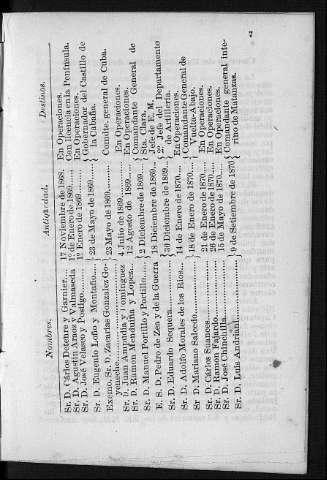 Nombres. Antigüedad. Destinos.
Sr. D. Cárlos Detenre y Garnier.... 17 Noviembre de 1868. En Operaciones.
Sr. D. Agustin Araoz y Valmaseda 1º de Enero de 1869.... Con licencia en la Península.
Sr. D. José Velasco y Postigo...... 1º Enero de 1869....... En Operaciones.
Sr. D. Eugenio Loño y Montaño... 23 de Mayo de 1869.... Gobernador del Castillo de
la Cabaña.
Excmo. Sr. D. Zacarías Gonzalez Go-
yeneche........ 23 Mayo de 1869........ Comdte. general de Cuba.
Sr. D. Juan Ampudia y Dominguez 4 Julio de 1869........ En Operaciones.
Sr. D. Ramon Menduiña y Lopez.. 12 Agosto de 1869..... Comandante General de
Sr. D. Manuel Portillo y Portillo.... 2 Diciembre de 1869.... Sta. Clara.
E. S. D. Pedro de Zea y de la Guerra 18 Diciembre de 1869... Jefe de E. M.
Sr. D. Eduardo Sequera........ 30 Diciembre de 1869... 2º Jefe del Departamento
de Artillería.
Sr. D. Adolfo Morales de los Rios.. 14 de Enero de 1870.... En Operaciones.
Sr. D. Mariano Salcedo........ 18 de Enero de 1870.... Comandante General de
Vuelta-Abajo.
Sr. D. Cárlos Suances........ 21 de Enero de 1870.... En Operaciones.
Sr. D. Ramon Fajardo........ 26 de Enero de 1870.... En Operaciones.
Sr. D. José Chinchilla........ 15 de Mayo de 1870.... En Operaciones.
Sr. D. Luis Andriani........ 9 de Setiembre de 1870 Comandante general inte-
rino de Matanzas.